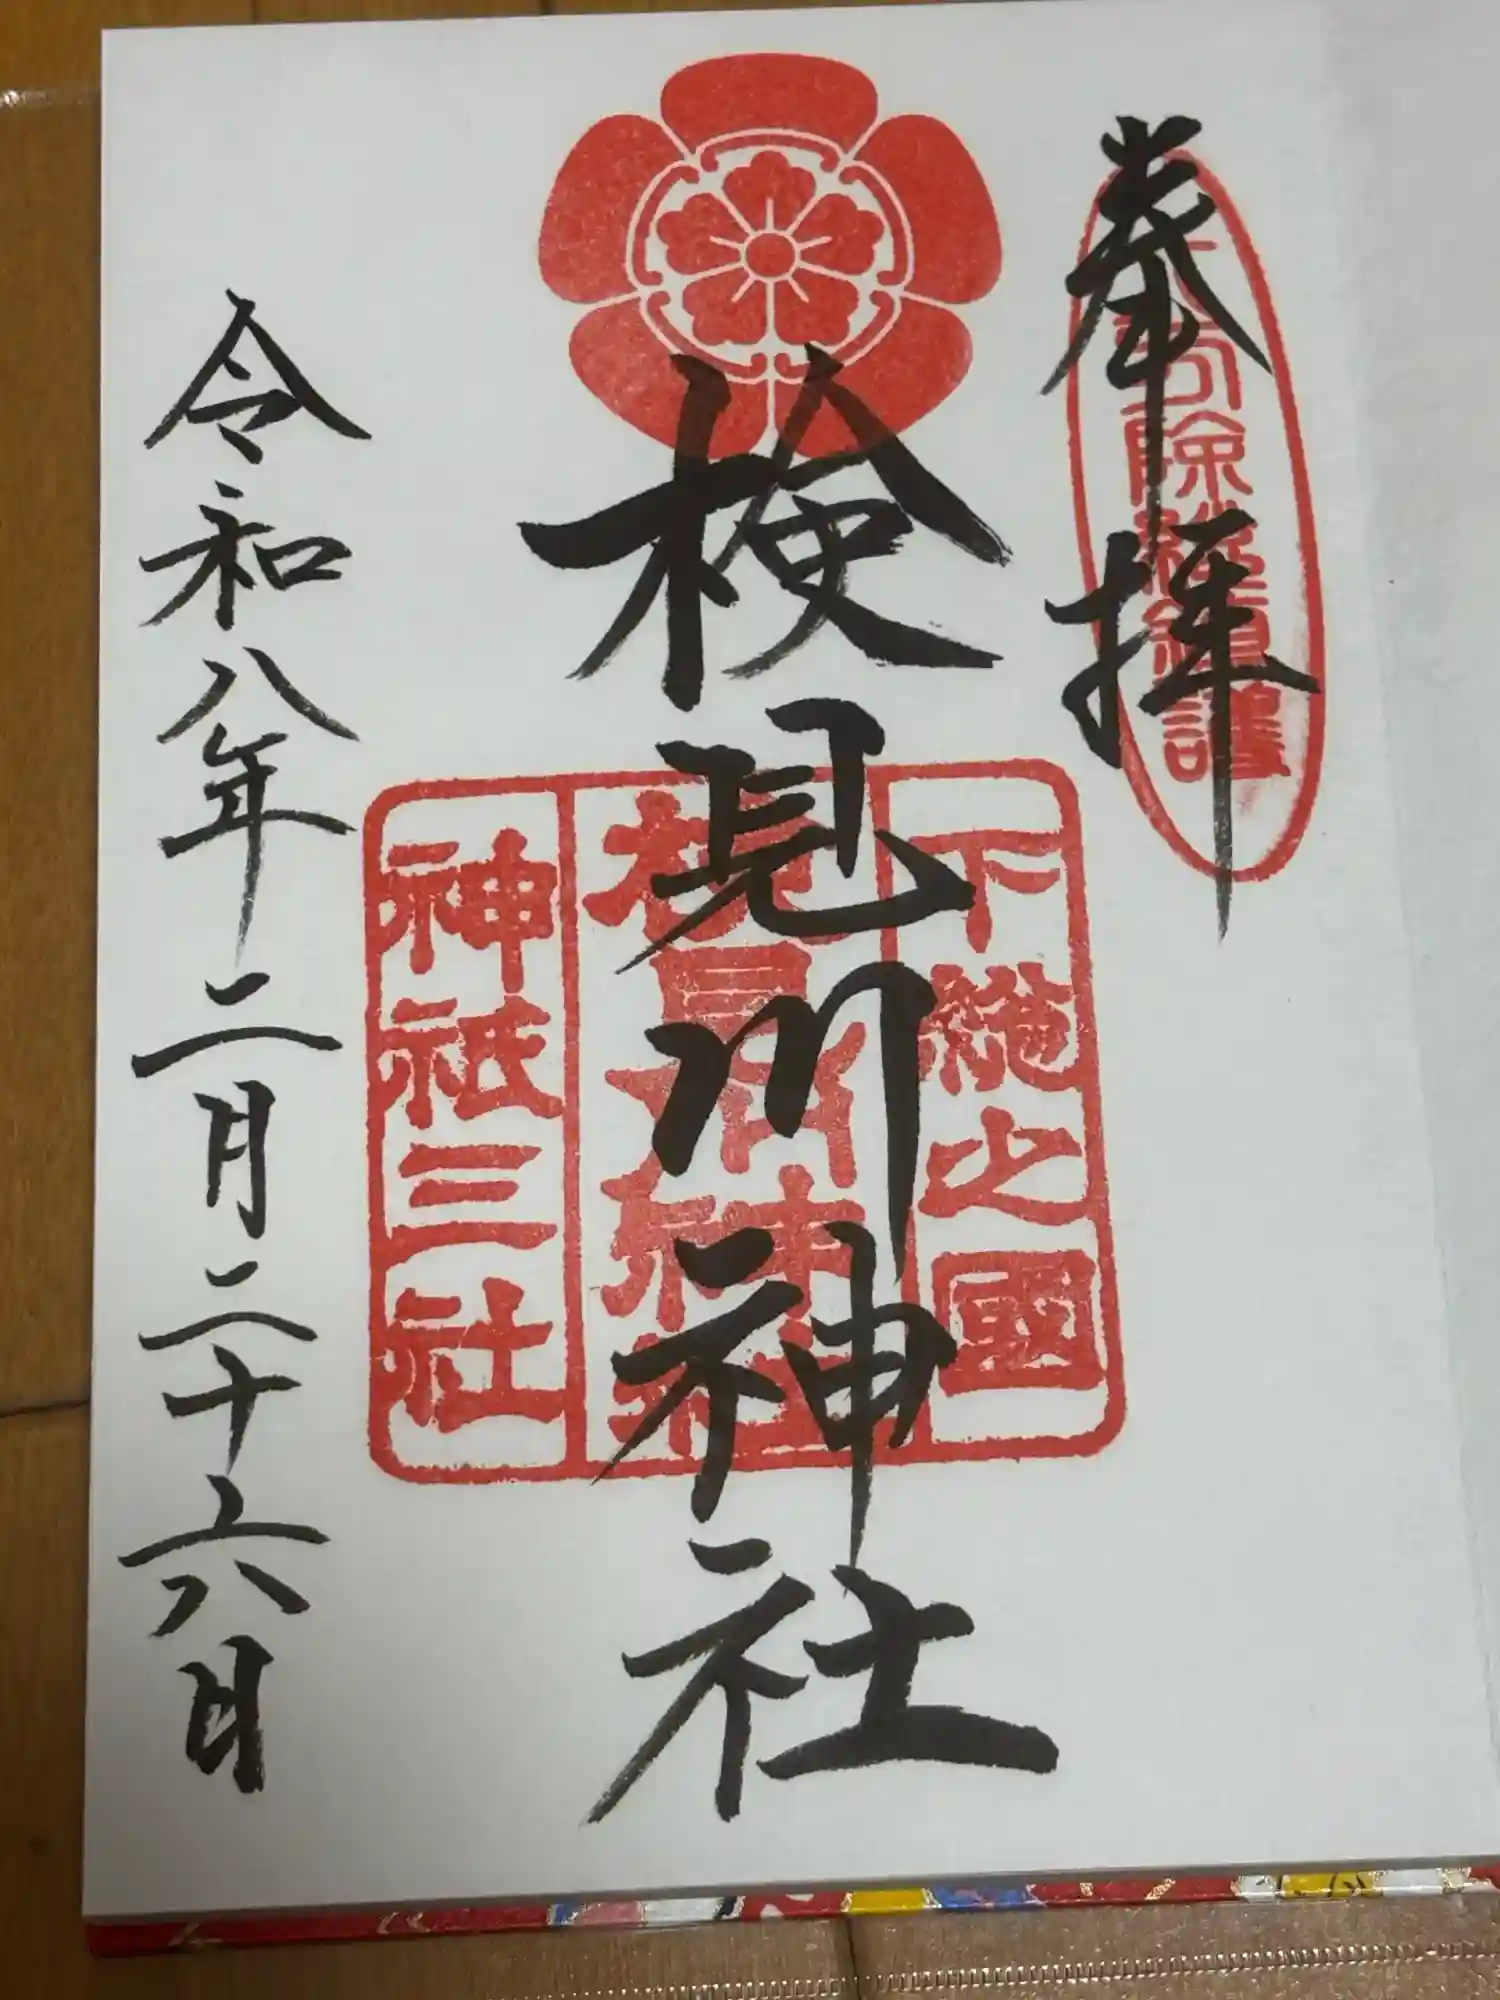 奉拝
八方除総鎮護
検見川神社
下総之國
検見川神社
神祇三社
令和八年二月二十六日